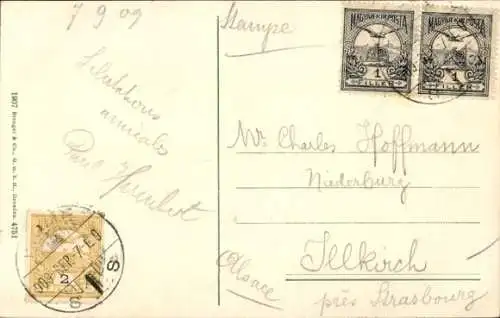 7 9 09
Stampe
MAGYAR KIR. POSTA
1
FILLÉR
MAGYAR KIR. POSTA
1
FILLÉR
Salutations
amicales
Paul Humbert
Mr Charles Hoffmann
Niederburg
Illkirch
Alsace
près Strasbourg
1907 Stengel & Co., G. m. b. H., Dresden. 4751
2